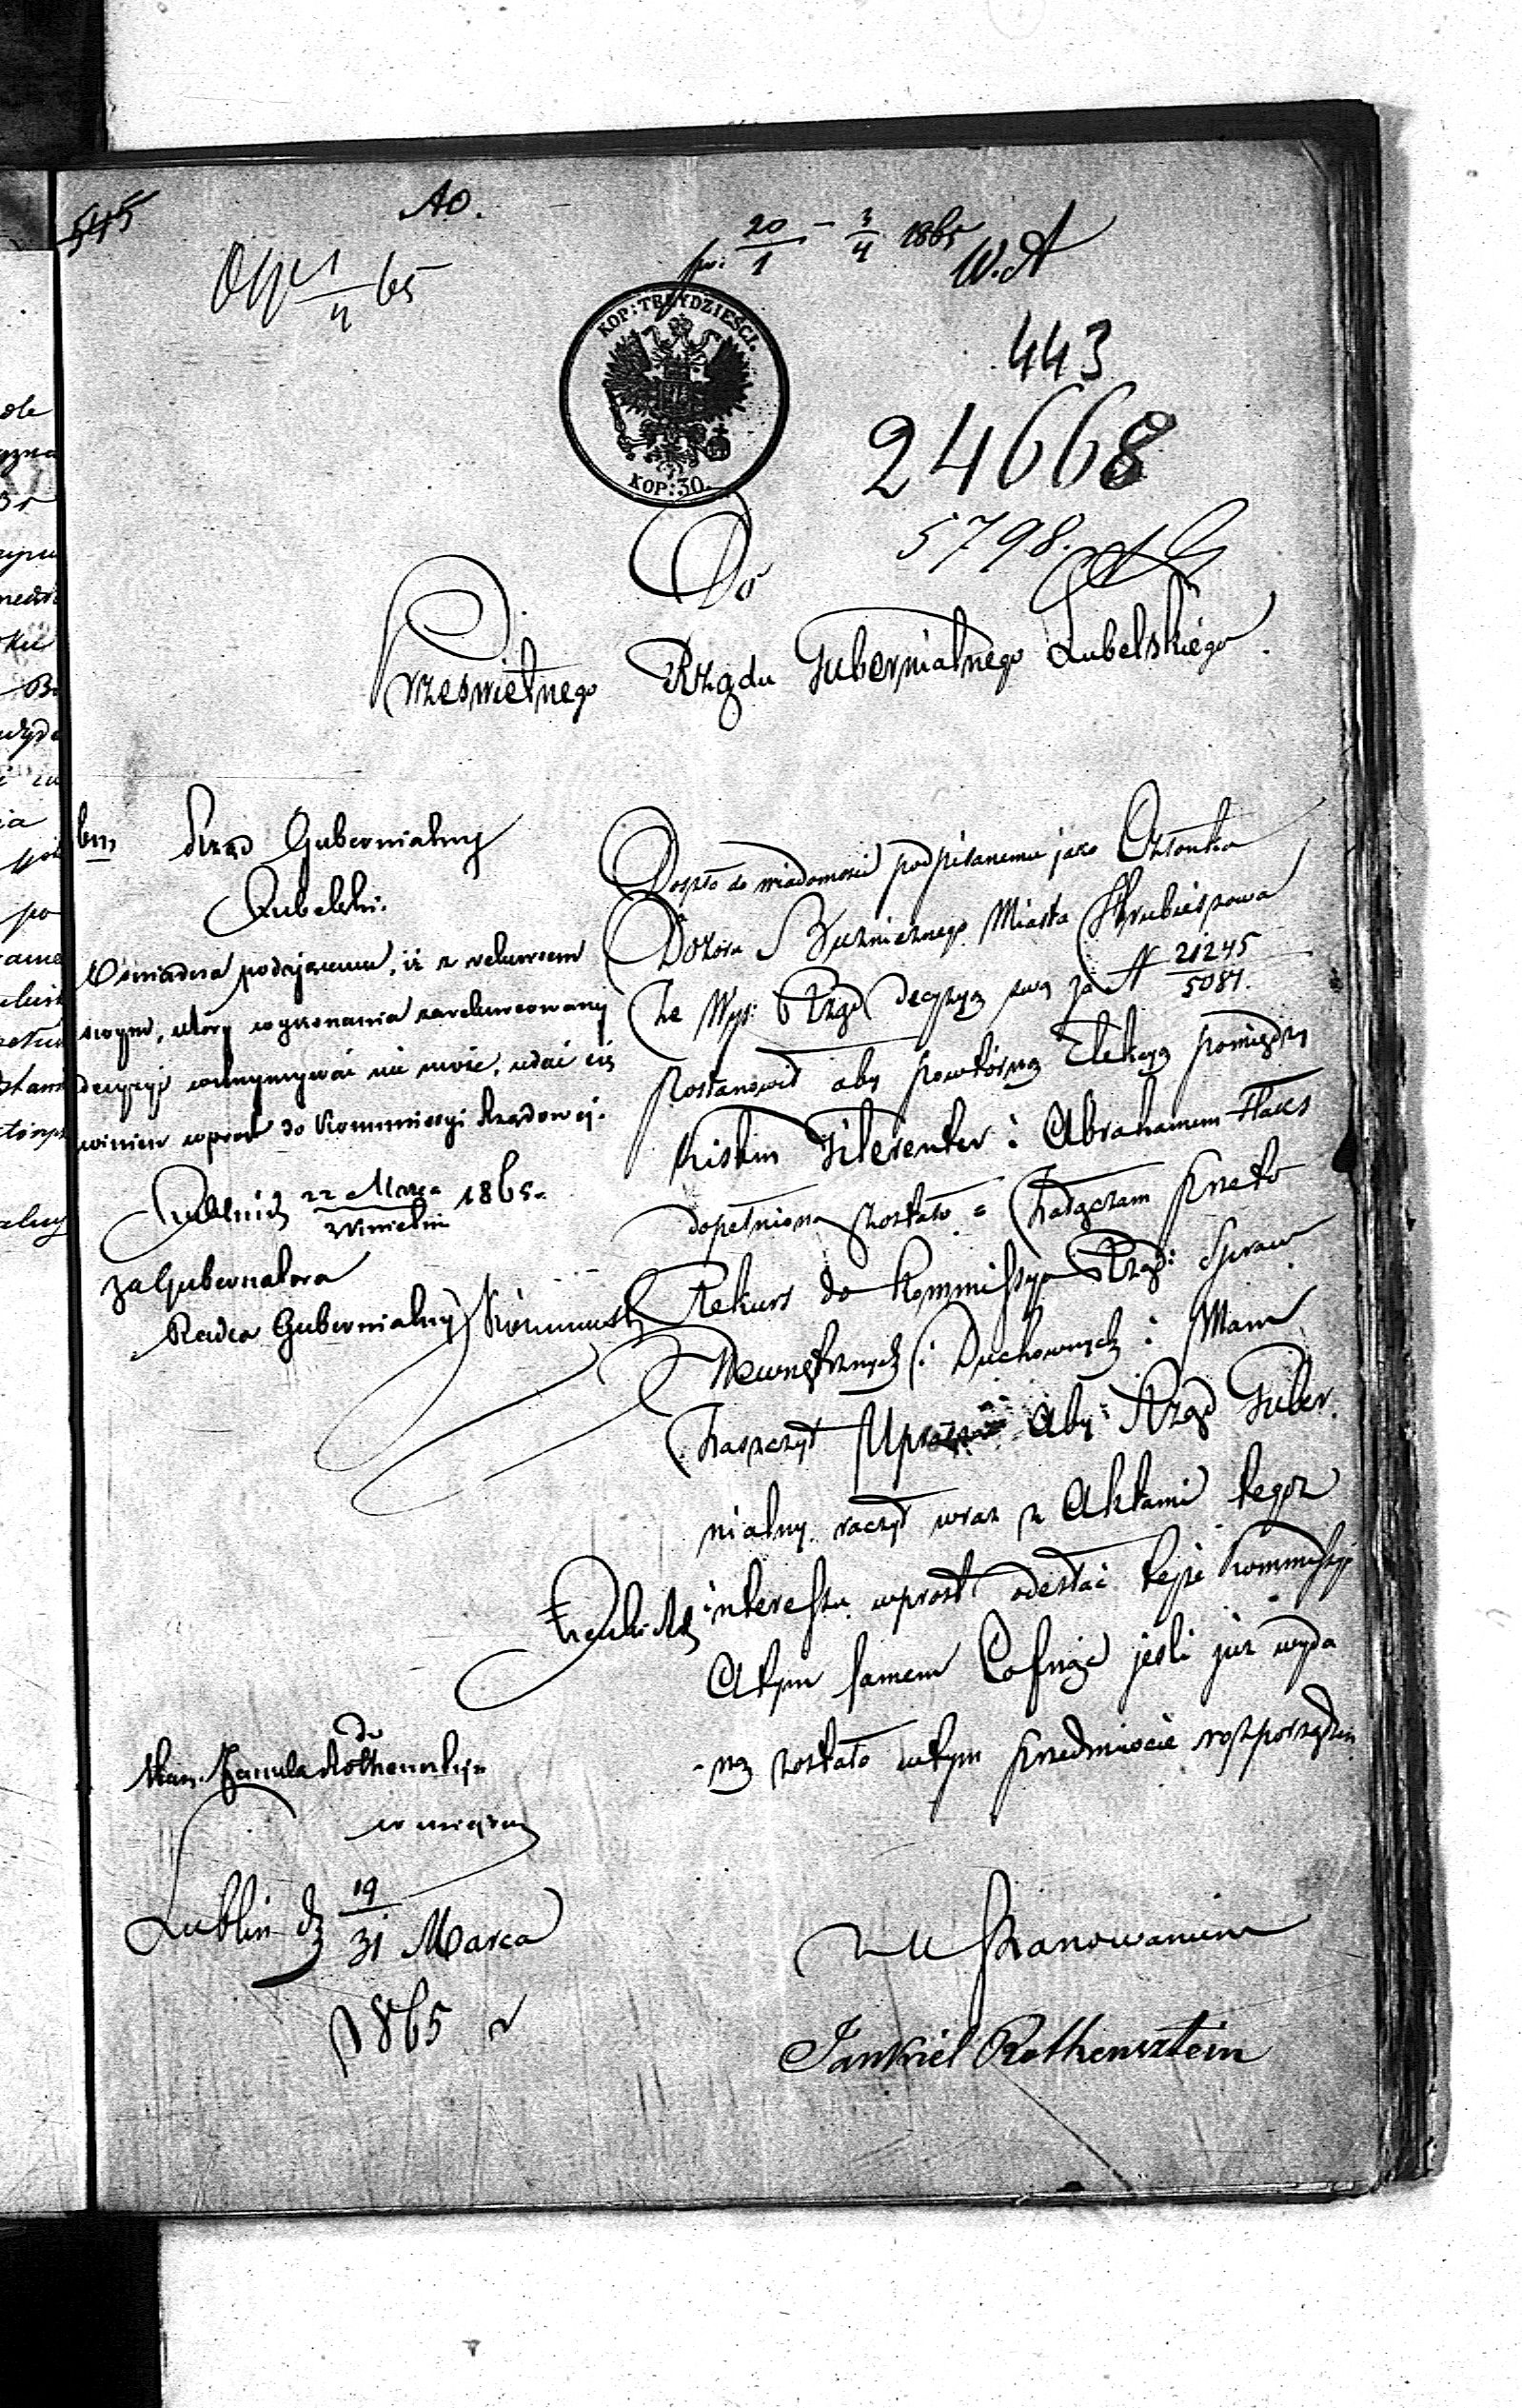 545
Ad.
pr. 20/1 - 3/4 1865
W.A
65
KOP: TRZYDZIEŚCI.
KOP: 30.
443
24668
5798.
Do
Prześwietnego Rządu Gubernialnego Lubelskiego.
Rząd Gubernialny
Lubelski.
Oświadcza podającemu, iż z rekursem
swym, który wykonania zarekursowany
decyzyi wstrzymywać nie może, udać się
winien wprost do Kommissyi Rządowej.
22 Marca
3 Kwietnia 1865.
za Gubernatora
Radca Gubernialny
Doszło do wiadomości podpisanemu jako Członka
Dozoru Bużnicznego Miasta Hrubieszowa
że Wys: Rząd decyzyą swą za N 21245/5081.
postanowił aby powtórną Elekcyą pomiędzy
i Abrahamem Flaks
dopełniona została = Załączam przeto
Rekurs do Kommissyi Rząd: Spraw
Wewnętrznych i Duchownych i Mam
Zaszczyt Upraszać aby Rząd Guber
nialny raczył wraz z Aktami tegoż
interessu wprost odesłać tejże Kommissyi
Atym samem Cofnąć jeśli już wyda
ną zostało wtym przedmiocie rozporządzen
w miejscu
Lublin d. 19/31 Marca
1865 r
Z Uszanowaniem
Jankiel Rothensztein